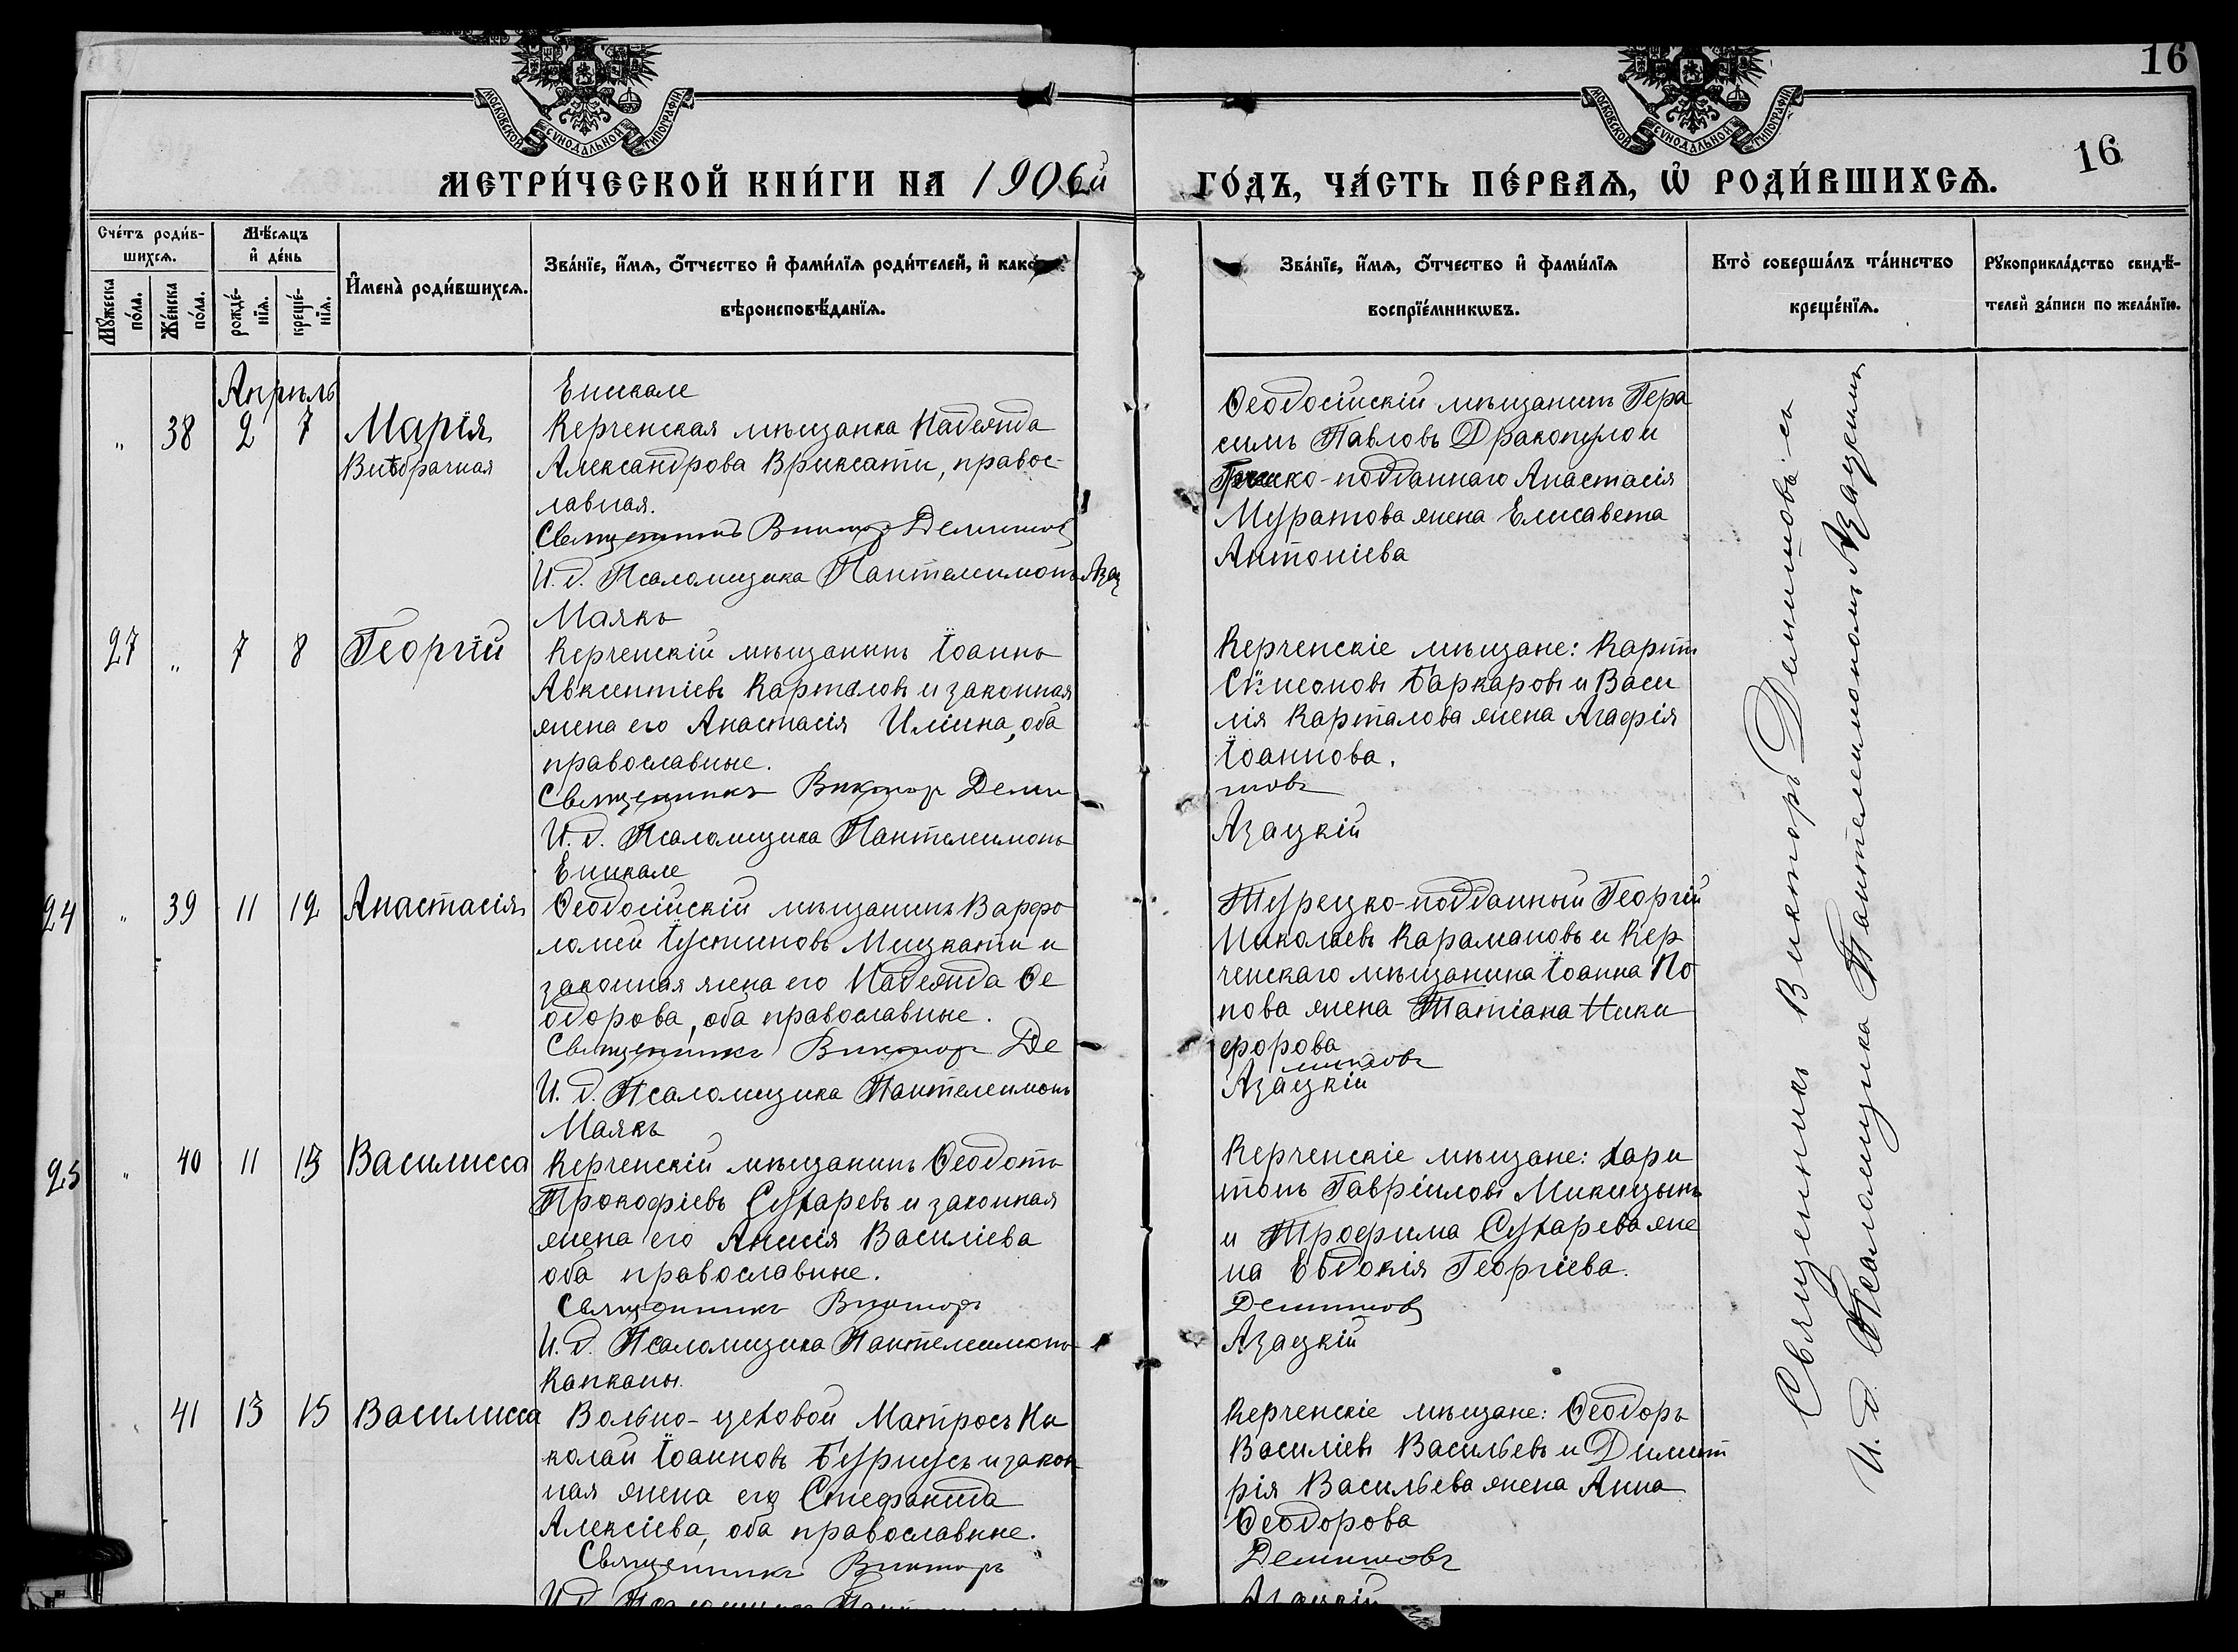 16
МОСКОВСКОЙ СѴНОДАЛЬНОЙ ТИПОГРАФІИ
МОСКОВСКОЙ СѴНОДАЛЬНОЙ ТИПОГРАФІИ
16
МЕТРИ́ЧЕСКОЙ КНИ́ГИ НА 1906й ГО́ДЪ, ЧА́СТЬ ПЕ́РВАѦ, Ѡ РОДИ́ВШИХСѦ.
Сче́тъ роди́в-
шихсѧ.
Мꙋ́жеска по́ла.
Же́нска по́ла.
Мѣ́сѧцъ
и҆ де́нь
рожде́-
нїѧ.
креще́-
нїѧ.
И҆мена̀ роди́вшихсѧ.
Зва́нїе, и҆́мѧ, ѻ҆́тчество и҆ фами́лїѧ роди́телей, и҆ како́
вѣроисповѣ́данїѧ.
Зва́нїе, и҆́мѧ, ѻ҆́тчество и҆ фами́лїѧ
воспрїе́мникѡвъ.
Кто̀ соверша́лъ та́инство
креще́нїѧ.
Рꙋкоприкла́дство свидѣ́-
телей за́писи по жела́нїю.
Апрѣль
„ 38 2 7 Марія
Внѣбрачная
Еникале
Керченская мѣщанка Надежда
Александрова Вриксати, правос-
лавная.
Священникъ Викторъ Демишовъ
И. д. Псаломщика Пантелеимонъ Азац
Ѳеодосійскій мѣщанинъ Гера
симъ Павловъ Дракопуло и
Греко-подданнаго Анастасія
Муратова жена Елисавета
Антоніева
27 „ 7 8 Георгій
Маякъ
Керченскій мѣщанинъ Іоаннъ
Авксентіевъ Карталовъ и законная
жена его Анастасія Иліина, оба
православные.
Священникъ Викторъ Деми
И. д. Псаломщика Пантелеимонъ
Керченскіе мѣщане:
Баркаровъ и Васи
лія Карталова жена Агафія
Іоаннова.
шовъ
Азацкій
24 „ 39 11 12 Анастасія
Еникале
Ѳеодосійскій мѣщанинъ Варфо
ломей Іустиновъ Мицкати и
законная жена его Надежда Ѳе
одорова, оба православные.
Священникъ Викторъ Де
И. д. Псаломщика Пантелеимонъ
Турецко-подданный Георгій
Николаевъ Карамановъ и Кер
ченскаго мѣщанина Іоанна По
пова жена Татіана Ники
форова
мишовъ
Азацкій
25 „ 40 11 13 Василисса
Маякъ
Керченскій мѣщанинъ Ѳеодотъ
Прокофіевъ Сухаревъ и законная
жена его Анисія Василіева
оба православные.
Священникъ Викторъ
И. д. Псаломщика Пантелеимонъ
Керченскіе мѣщане: Хари
тонъ Гавріиловъ
и Трофима Сухарева же
на Евдокія Георгіева.
Демишовъ
Азацкій
41 13 15 Василисса
Капканы.
Вольно-цеховой Матросъ Ни
колай Іоанновъ Бурнусъ и закон
ная жена его Стефанида
Алексіева, оба православные.
Священникъ Викторъ
И. д. Псаломщика
Керченскіе мѣщане: Ѳеодоръ
Василіевъ Васильевъ и Димит
рія Васильева жена Анна
Ѳеодорова
Демишовъ
Азацкій
Священникъ Викторъ Демишовъ съ
И. д. Псаломщика Пантелеимономъ Азацкимъ